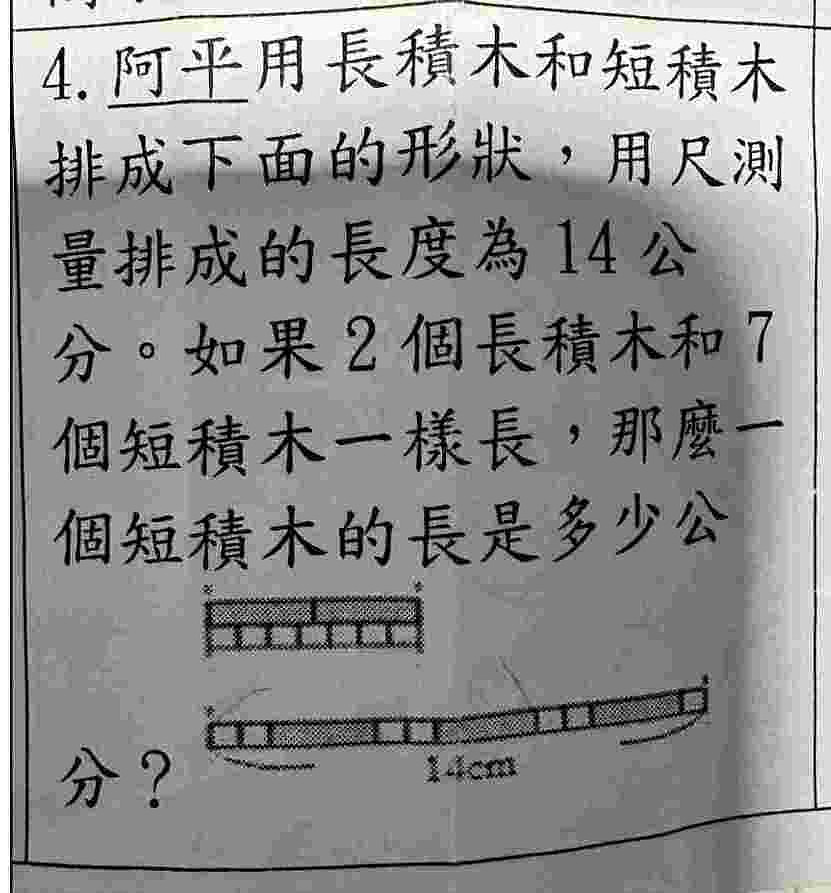 4. 阿平用長積木和短積木
排成下面的形狀，用尺測
量排成的長度為 14 公
分。如果 2 個長積木和 7
個短積木一樣長，那麼一
個短積木的長是多少公
14cm
分？